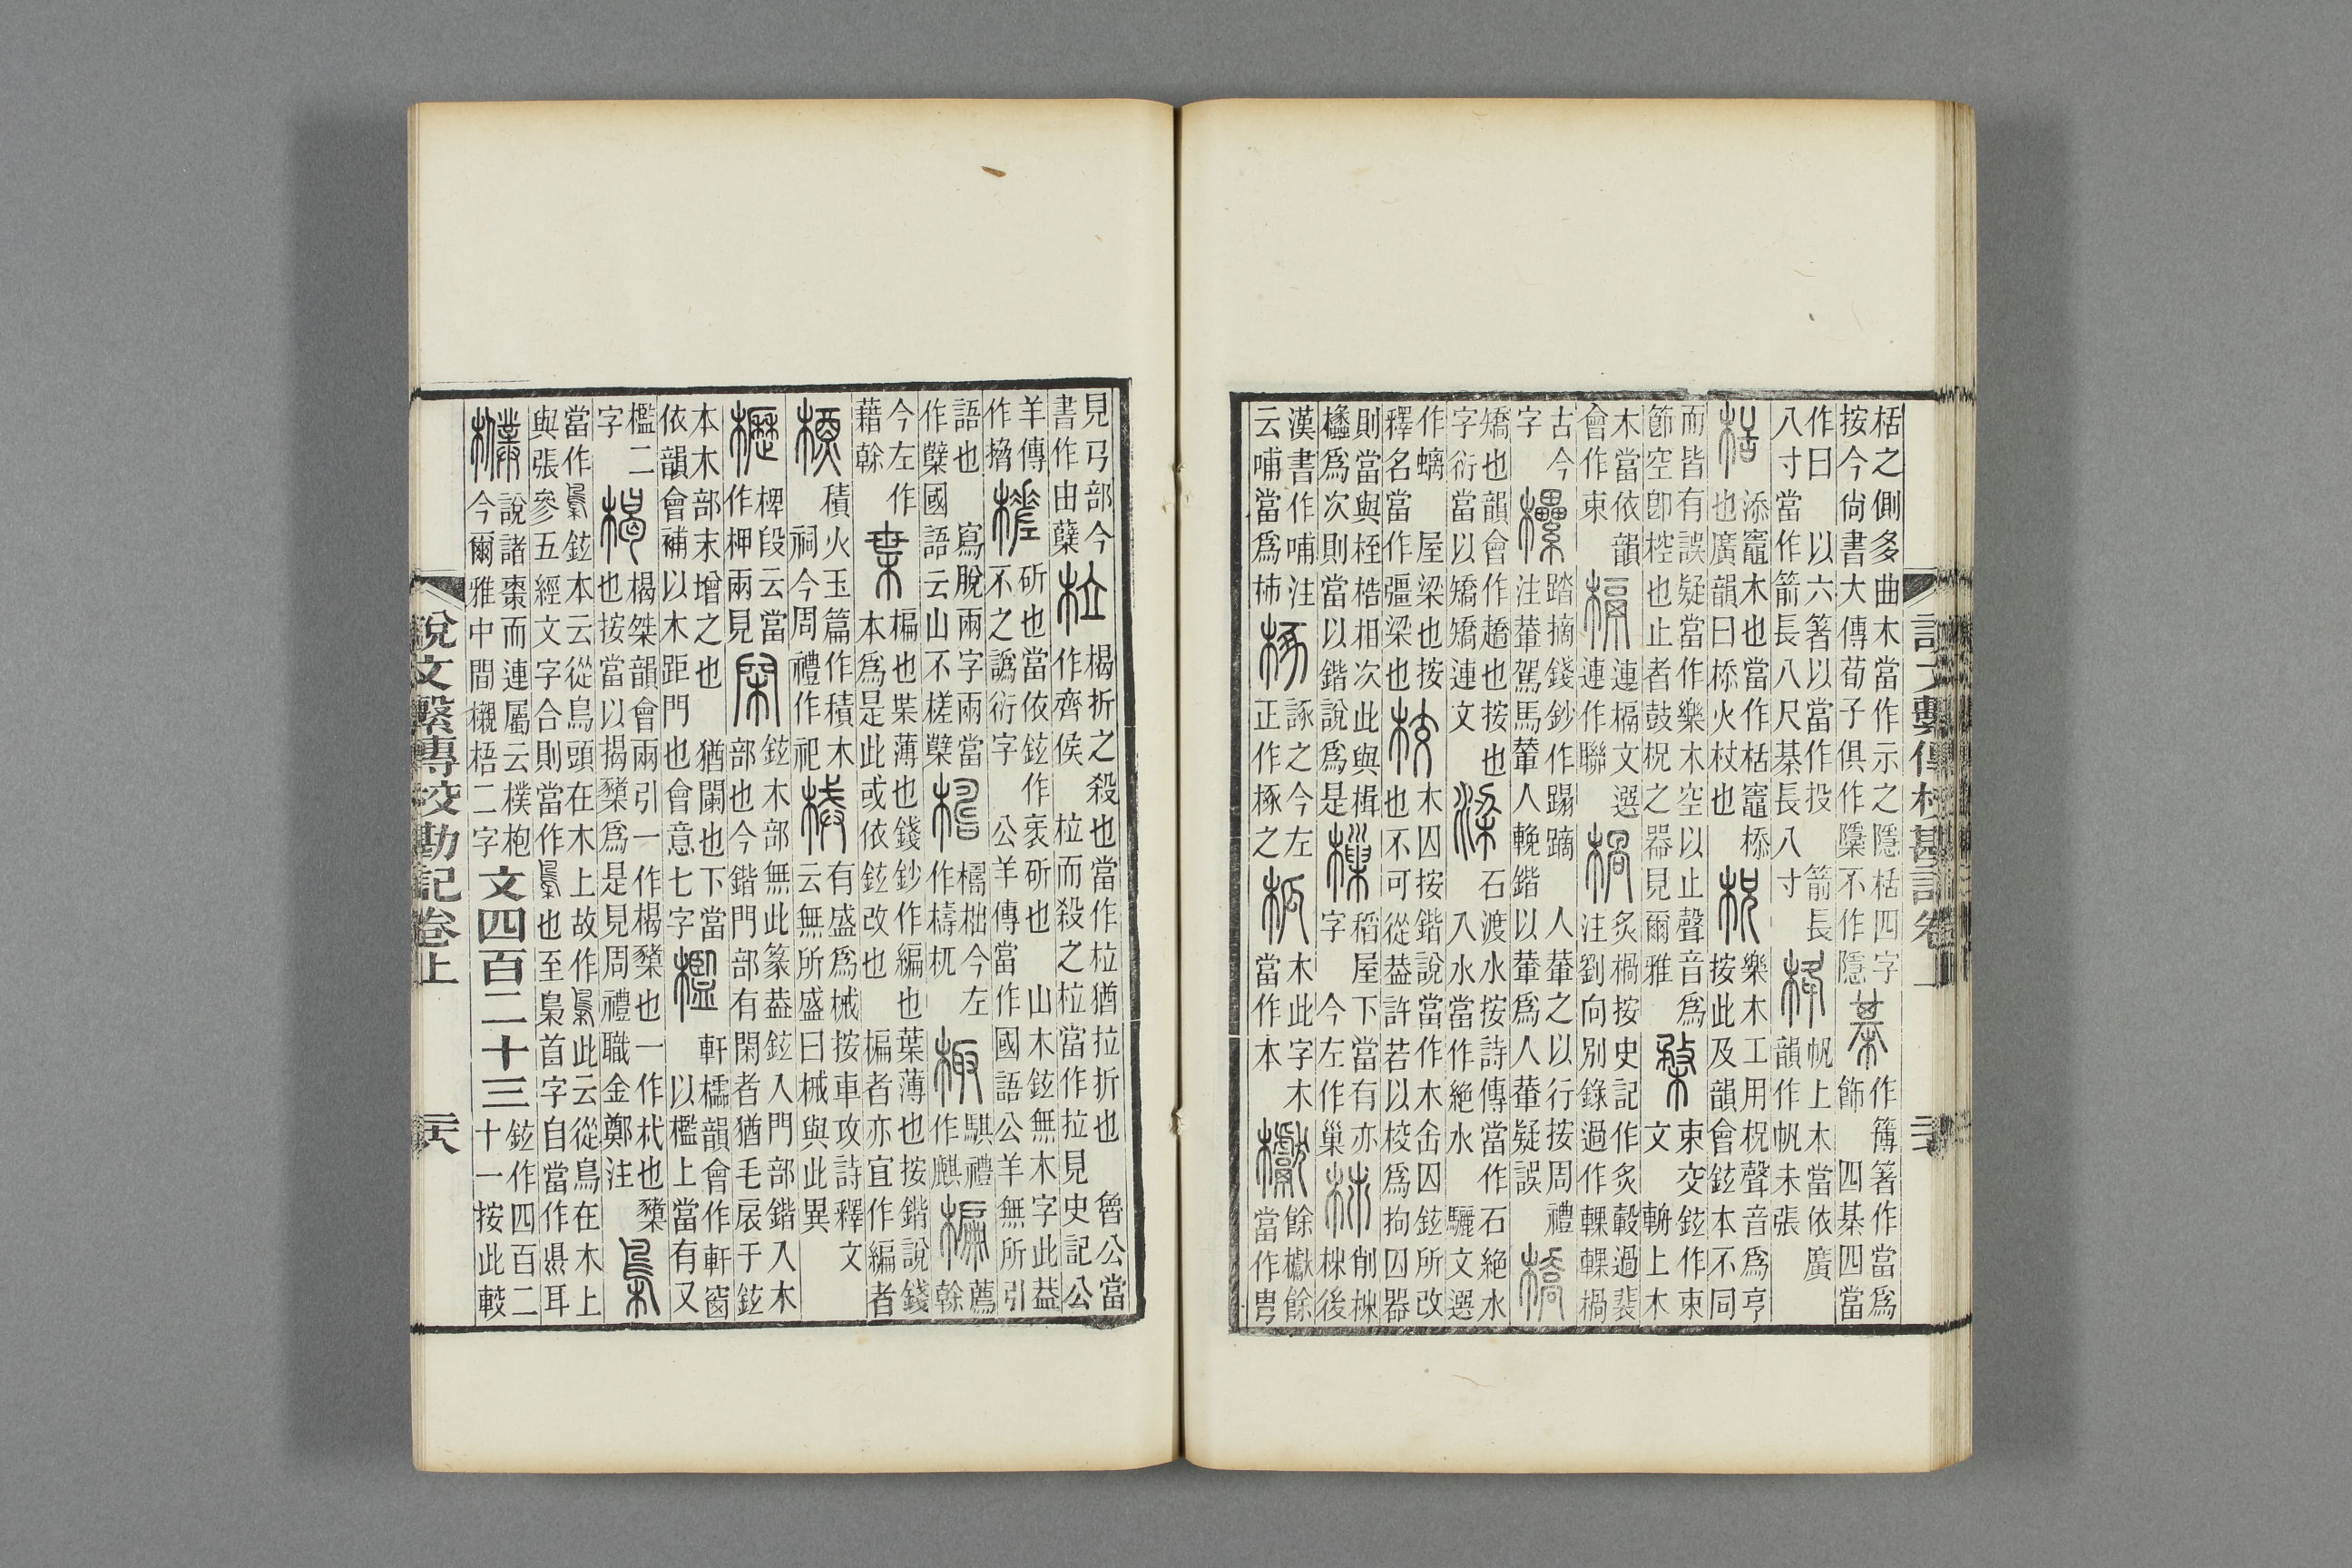 栝之側多曲木當作示之隱栝四字
按今尙書大傳荀子俱作檃不作隱
棊
作簿箸作當爲
飾 四棊四當
作曰 以六箸以當作投 箭長
八寸當作箭長八尺棊長八寸
栙
帆上木當依廣
韻作帆未張
栝
添竈木也當作栝竈㮇
也廣韻曰㮇火杖也
柷
樂木工用柷聲音爲亨
按此及韻會鉉本不同
而皆有誤疑當作樂木空以止聲音爲
節空卽椌也止者鼓柷之器見爾雅
楘
束交鉉作束
文 輈上木
木當依韻
會作束
楅
連楅文選
連作聯
楇
炙楇按史記作炙轂過裴
注劉向別錄過作輠輠楇
古今
字
欙
踏摘錢鈔作蹋蹢 人輂之以行按周禮
注輂駕馬輦人輓鍇以輂爲人輂疑誤
橋
矯也韻會作趫也按也
字衍當以矯矯連文
梁
石渡水按詩傳當作石絕水
入水當作絕水 驪文選
作螭 屋梁也按
釋名當作彊梁也
校
木囚按鍇說當作木缶囚鉉所改
也不可從葢許若以校爲拘囚器
則當與桎梏相次此與楫
欚爲次則當以鍇說爲是
樔
稻屋下當有亦
字 今左作巢
削
後
漢書作哺注
云哺當爲柿
椓
諑之今左
正作椓之
柧
木此字木
當作本
餘櫱餘
當作
說文繫傳校勘記卷上
見弓部今
書作由蘗
柆
楬折之殺也當作柆猶拉折也 魯公當
作齊侯 柆而殺之柆當作拉見史記公
羊傳
作搚
槎
斫也當依鉉作衺斫也 山木鉉無木字此葢
不之譌衍字 公羊傳當作國語公羊無所引
語也 寫脫兩字兩當
作櫱國語云山不槎櫱
檮柮今左
作檮杌
棷
騏禮
作麒
楄
薦
榦
今左作
藉榦
枼
楄也枼薄也錢鈔作編也葉薄也按鍇說錢
本爲是此或依鉉改也 楄者亦宜作編者
槱
積火玉篇作積木
祠今周禮作祀
械
有盛爲械按車攻詩釋文
云無所盛曰械與此異
櫪
椑段云當
作柙兩見
閑
鉉木部無此篆葢鉉入門部鍇入木
部也今鍇門部有閑者猶毛扆于鉉
本木部末增之也 猶闌也下當
依韻會補以木距門也會意七字
檻
軒櫺韻會作軒窗
以檻上當有又
檻二
字
楬
楬桀韻會兩引一作楬櫫也一作杙也櫫
也按當以揭櫫爲是見周禮職金鄭注
梟
當作鉉本云從鳥頭在木上故作此云從鳥在木上
與張參五經文字合則當作也至梟首字自當作耳
說諸棗而連屬云樸枹
今爾雅中間櫬梧二字
文四百二十三
鉉作四百二
十一按此較
說文繫傳校勘記卷上